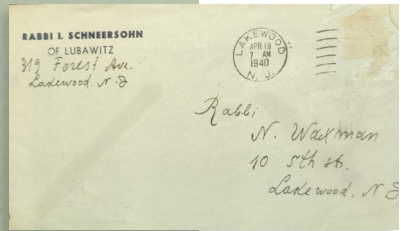 RABBI I. SCHNEERSOHN
OF LUBAWITZ
319 Forest Ave.
Lakewood. N. J
LAKEWOOD
APR 18
7 AM
1940
N. J.
Rabbi
N. Waxman
10 5th str.
Lakewood, N J